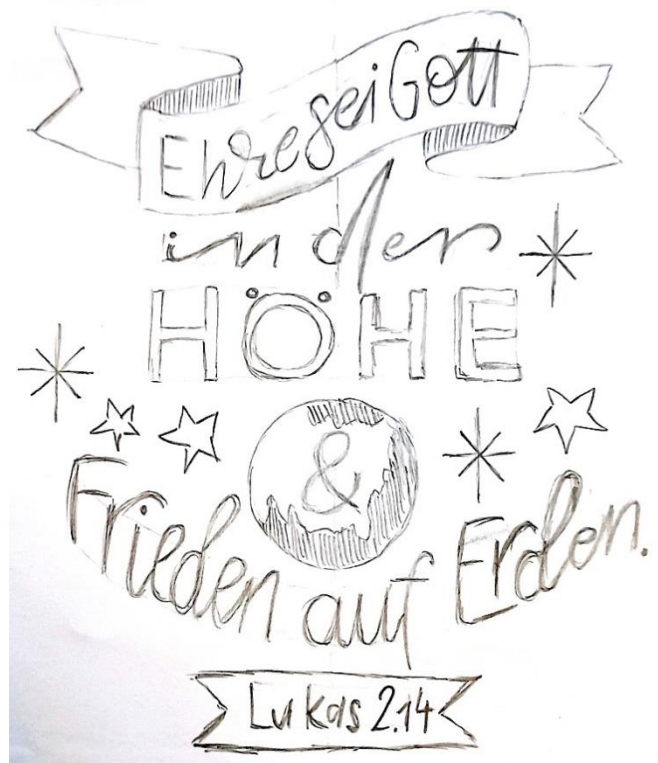 Ehre sei Gott
in der
HÖHE
&
Frieden auf Erden.
Lukas 2.14